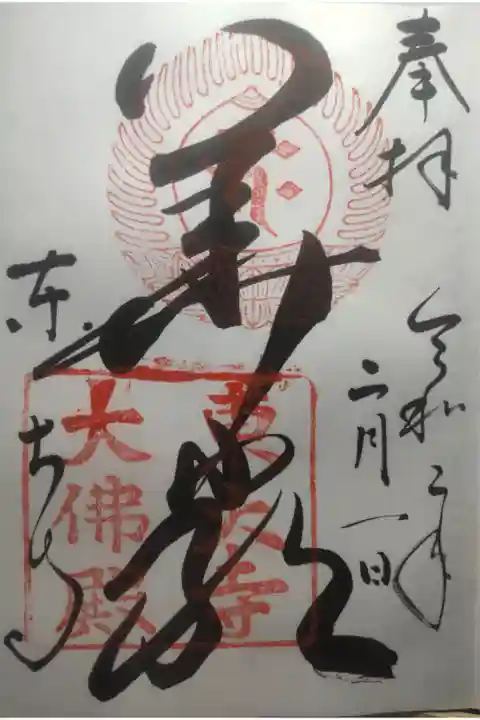 奉拝
令和二年
二月一日
華厳
東大寺
東大寺
大佛殿